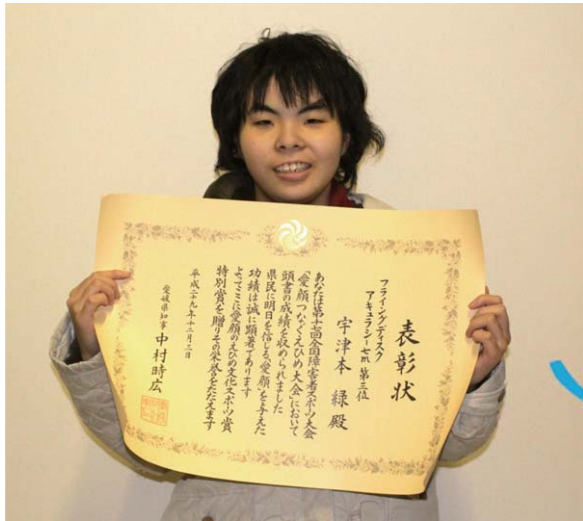 表彰状
フライングディスク
アキュラシー七m 第三位
宇津本 緑 殿
あなたは第十七回全国障害者スポーツ大会
「愛顔つなぐえひめ大会」において
頭書の成績を収められました
県民に明日を信じる「愛顔」を与えた
功績は誠に顕著であります
よってここに愛顔のえひめ文化・スポーツ賞
特別賞を贈りその栄誉をたたえます
平成二十九年十二月三日
愛媛県知事 中村時広